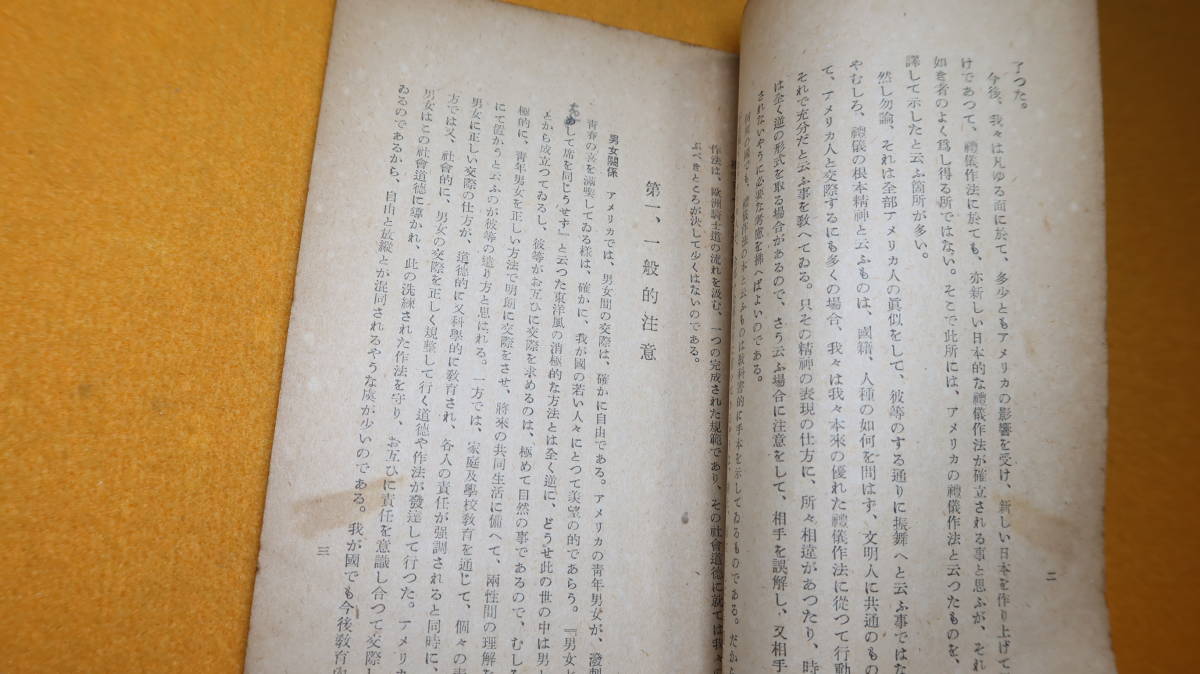 了つた。
今後、我々は凡ゆる面に於て、多少ともアメリカの影響を受け、新しい日本を作り上げて
けであつて、禮儀作法に於ても、亦新しい日本的な禮儀作法が確立される事と思ふが、それ
如き者のよく爲し得る所ではない。そこで此所には、アメリカの禮儀作法と云つたものを、
譯して示したと云ふ箇所が多い。
然し勿論、それは全部アメリカ人の眞似をして、彼等のする通りに振舞へと云ふ事ではな
やむしろ、禮儀の根本精神と云ふものは、國籍、人種の如何を問はず、文明人に共通のもの
て、アメリカ人と交際するにも多くの場合、我々は我々本來の優れた禮儀作法に從つて行動
それで充分だと云ふ事を敎へてゐる。只その精神の表現の仕方に、所々相違があつたり、時
は全く逆の形式を取る場合があるので、さう云ふ場合に注意をして、相手を誤解し、又相手
されないやうに必要な考慮を拂へばよいのである。
何所の國でも、禮儀作法の本と云ふものは敎科書的に手本を示してゐるものである。だから
二
作法は、歐洲騎士道の流れを汲む、一つの完成された規範であり、その社會道德に就ては我々
ぶべきところが決して少くはないのである。
第一、一般的注意
男女關係 アメリカでは、男女間の交際は、確かに自由である。アメリカの青年男女が、潑剌
青春の喜を滿喫してゐる樣は、確かに、我が國の若い人々にとつて羨望の的であらう。『男女
して席を同じうせず』と云つた東洋風の消極的な方法とは全く逆に、どうせ此の世の中は男
とから成立つてゐるし、彼等がお互ひに交際を求めるのは、極めて自然の事であるので、むしろ
極的に、青年男女を正しい方法で明朗に交際をさせ、將來の共同生活に備へて、兩性間の理解
にて置かうと云ふのが彼等の遣り方と思はれる。一方では、家庭及學校敎育を通じて、個々の
男女に正しい交際の仕方が、道德的に又科學的に敎育され、各人の責任が强調されると同時に、
方では又、社會的に、男女の交際を正しく規整して行く道德や作法が發達して行つた。アメリカ
男女はこの社會道德に導かれ、此の洗練された作法を守り、お互ひに責任を意識し合つて交際し
ゐるのであるから、自由と放縱とが混同されるやうな虞が少いのである。我が國でも今後敎育
三